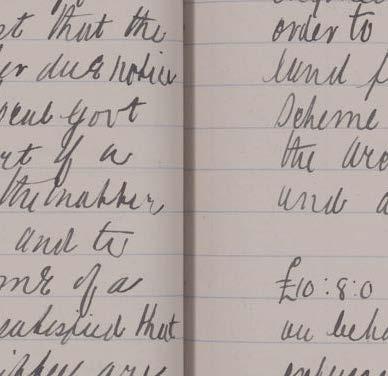 st that the
er due notice
ocal Govt
rt of a
the matter
and to
me of a
satisfied that
order to
land f
Scheme
the aro
and a
£10:8:0
on beha